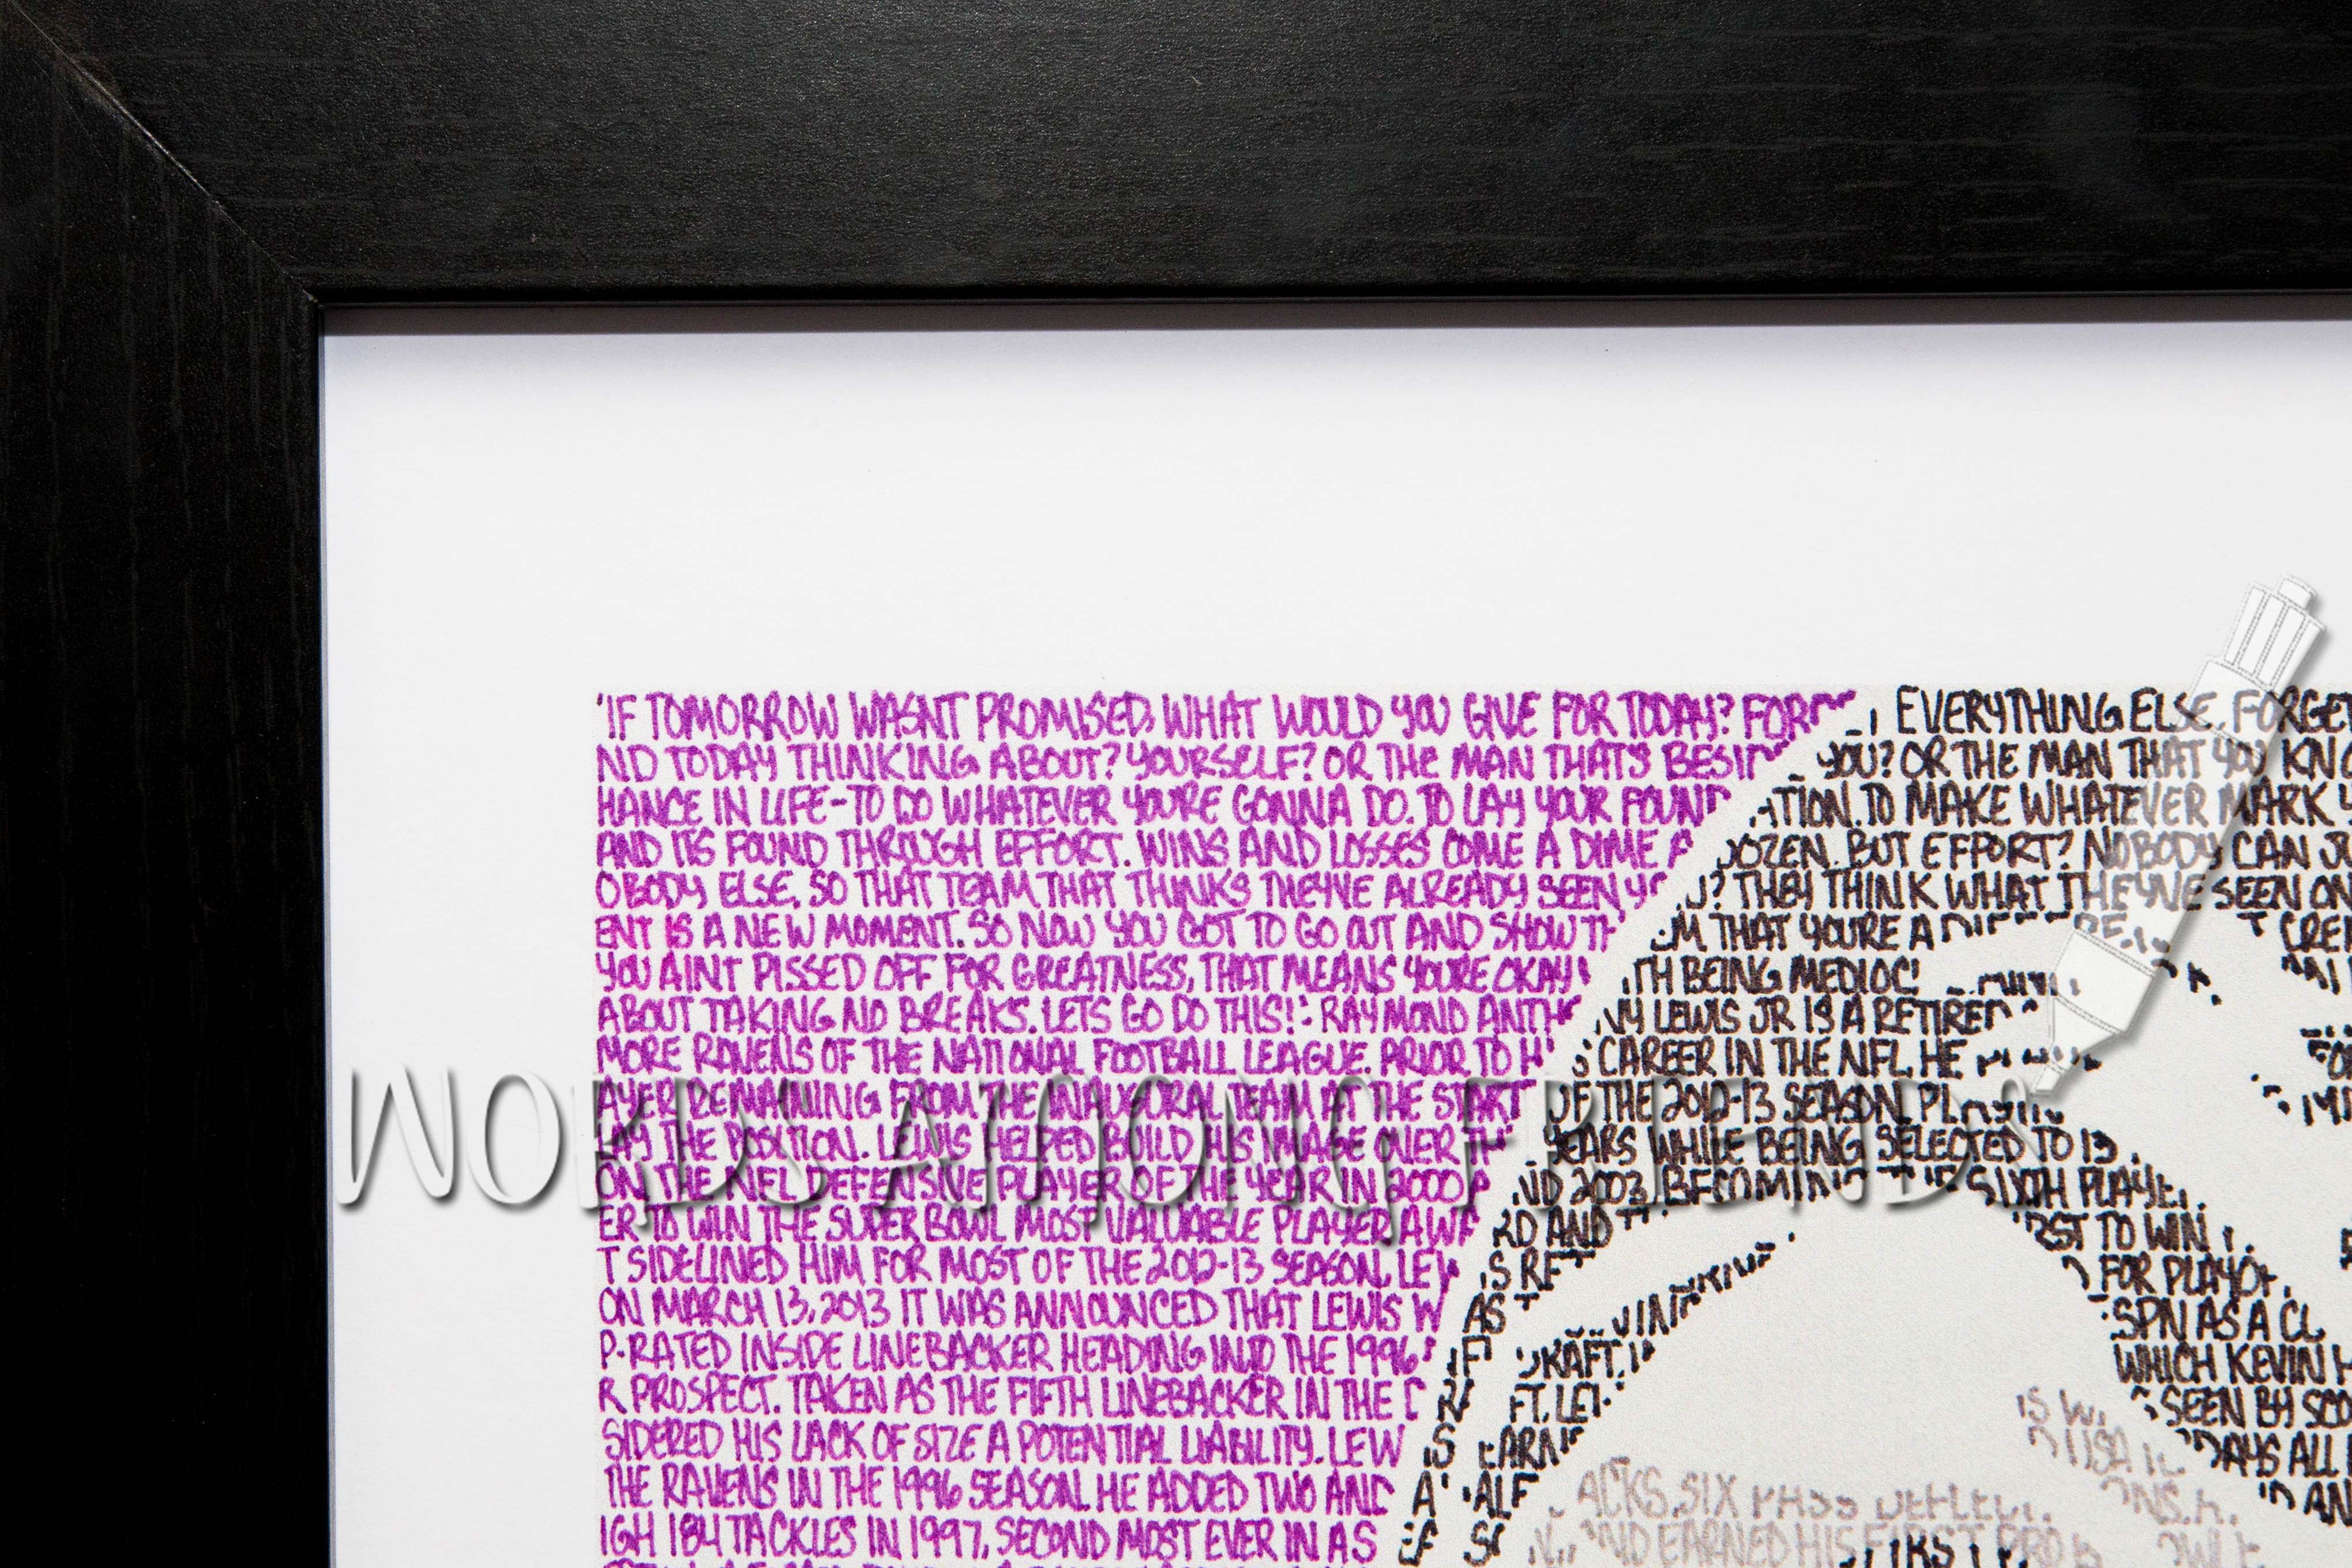 "IF TOMORROW WASNT PROMISED, WHAT WOULD YOU GIVE FOR TODAY? FOR EVERYTHING ELSE, FORGE
ND TODAY THINKING ABOUT? YOURSELF? OR THE MAN THAT'S BESID YOU? OR THE MAN THAT YOU KNO
HANCE IN LIFE-TO DO WHATEVER YOU'RE GONNA DO. TO LAY YOUR FOUND ATION. TO MAKE WHATEVER MARK
AND ITS FOUND THROUGH EFFORT. WINS AND LOSSES COME A DIME A DOZEN. BUT EFFORT? NOBODY CAN JU
OBODY ELSE. SO THAT TEAM THAT THINKS THEY'VE ALREADY SEEN YOU? THEY THINK WHAT THEYVE SEEN ON
ENT IS A NEW MOMENT. SO NOW YOU GOT TO GO OUT AND SHOW TH EM THAT YOU'RE A CRE
YOU AINT PISSED OFF FOR GREATNESS, THAT MEANS YOURE OKAY TH BEING MEDIOC
ABOUT TAKING NO BREAKS. LETS GO DO THIS!" RAYMOND ANTHONY LEWIS JR IS A RETIRED
MORE RAVENS OF THE NATIONAL FOOTBALL LEAGUE. PRIOR TO HIS CAREER IN THE NFL, HE
AYER REMAINING FROM THE INAUGURAL TEAM AT THE START OF THE 2012-13 SEASON. PLAYING
LAY THE POSITION. LEWIS HELPED BUILD HIS IMAGE OVER TH YEARS WHILE BEING SELECTED TO 13
ON THE NFL DEFENSIVE PLAYER OF THE YEAR IN 2000 AND 2003, BECOMING THE SIXTH PLAYE
ER TO WIN THE SUPER BOWL MOST VALUABLE PLAYER AWARD AND RST TO WIN
T SIDELINED HIM FOR MOST OF THE 2012-13 SEASON, LEWIS RE FOR PLAYOF
ON MARCH 13, 2013 IT WAS ANNOUNCED THAT LEWIS W AS SPN AS A CL
P-RATED INSIDE LINEBACKER HEADING INTO THE 1996 DRAFT, WHICH KEVIN H
R PROSPECT. TAKEN AS THE FIFTH LINEBACKER IN THE D FT, LE IS W SEEN BY SCO
SIDERED HIS LACK OF SIZE A POTENTIAL LIABILITY. LEWIS EARN USA DAYS ALL
THE RAVENS IN THE 1996 SEASON. HE ADDED TWO AND A HALF ACKS, SIX PASS DEFLECT ONS, AN
IGH 184 TACKLES IN 1997, SECOND MOST EVER IN AS AND EARNED HIS FIRST PRO
WORDS AMONG FRIENDS